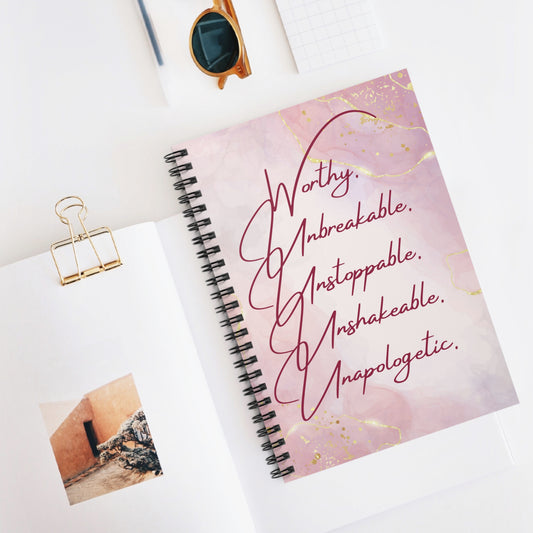 Worthy.
Unbreakable.
Unstoppable.
Unshakeable.
Unapologetic.